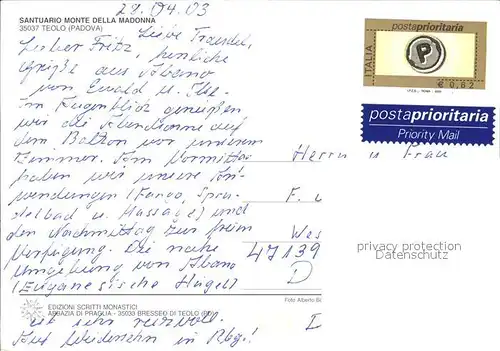 29.04.03
SANTUARIO MONTE DELLA MADONNA
35037 TEOLO (PADOVA)
Liebe Traudel,
Lieber Fritz, herzliche
Grüße aus Abano
von Ewald u. Ilse.
Im Augenblick genießen
wir die Abendsonne auf
dem Balkon vor unserem
Zimmer. Am Vormittag
haben wir unsere An-
wendungen (Fango, Spru-
delbad u. Massage) und
den Nachmittag zur freien
Verfügung. Die nahe
Umgebung von Abano
(Euganeische Hügel)
ist sehr reizvoll.
Auf Wiedersehn in Rbg.!
ITALIA
postaprioritaria
P
€ 0,62
I.P.Z.S. - ROMA - 2002
postaprioritaria
Priority Mail
Herrn u Frau
F.
Wes
47139
D
privacy protection
Datenschutz
Foto Alberto
EDIZIONI SCRITTI MONASTICI
ABBAZIA DI PRAGLIA - 35033 BRESSEO DI TEOLO (PD)